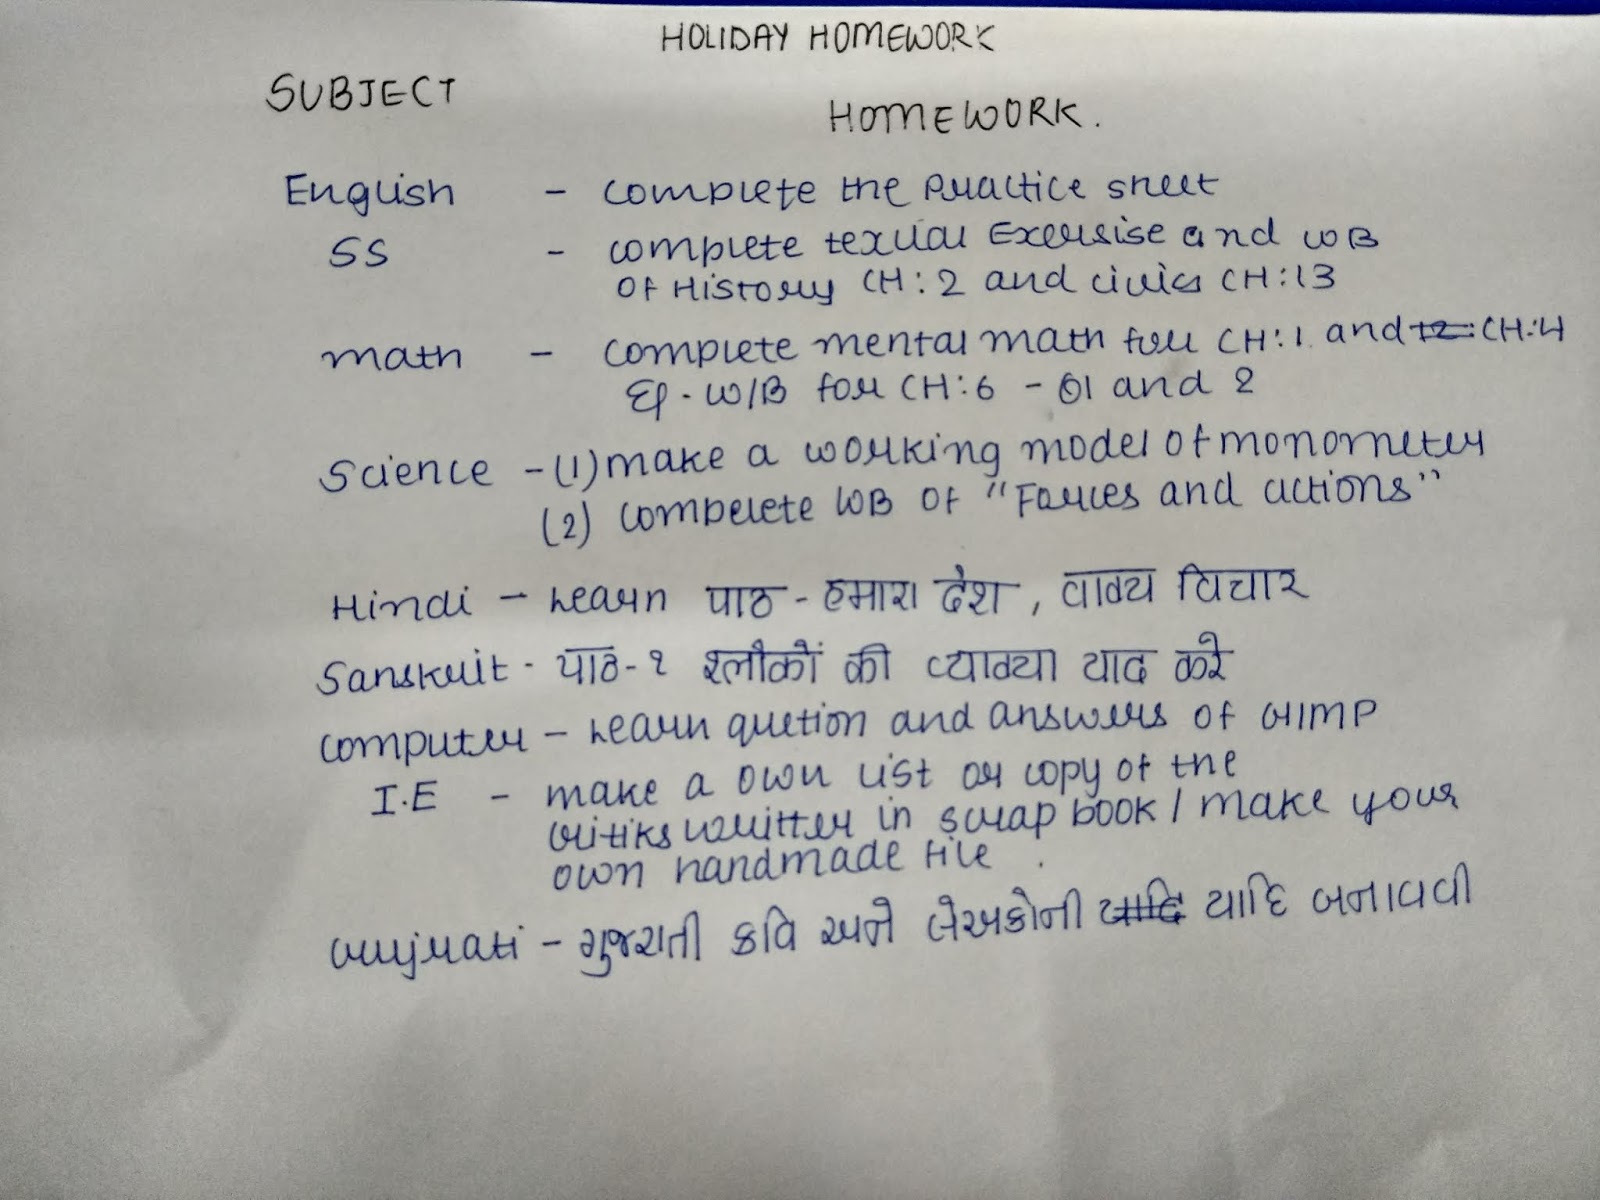 HOLIDAY HOMEWORK
SUBJECT
HOMEWORK.
English - complete the Practice sheet
SS - complete texual Exersise and WB
Of History CH:2 and civics CH:13
math - complete mental math for CH:1 and CH:4
W/B for CH:6 - 01 and 2
Science - (1) make a working model of monometer
(2) compelete WB of "Forces and actions"
Hindi - Learn पाठ - हमारा देश, वाक्य विचार
Sanskrit - पाठ-२ श्लोकों की व्याख्या याद करे
computer - Learn quetion and answers of GIMP
I.E - make a own list or copy of the
critiks writter in scrap book / make your
own handmade file.
Gujrati - ગુજરાતી કવિ અને લેખકોની યાદિ બનાવવી